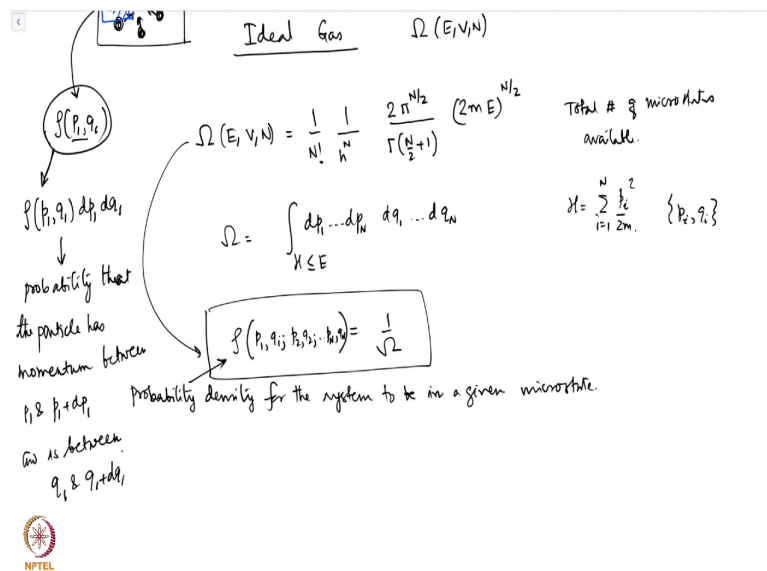 Ideal Gas Ω(E,V,N)
ρ(p₁,q₁)
Ω(E,V,N) = 1/N! 1/h^N 2π^{N/2}/Γ(N/2+1) (2mE)^{N/2}
Total # of microstates
available.
ρ(p₁,q₁) dp₁dq₁
H = Σ_{i=1}^{N} p_i²/2m. {p_i,q_i}
Ω = ∫_{H≤E} dp₁...dp_N dq₁...dq_N
probability that
the particle has
momentum between
p₁ & p₁+dp₁
is between
q₁ & q₁+dq₁
ρ(p₁,q₁; p₂,q₂; ..p_N,q_N) = 1/Ω
Probability density for the system to be in a given microstate.
NPTEL